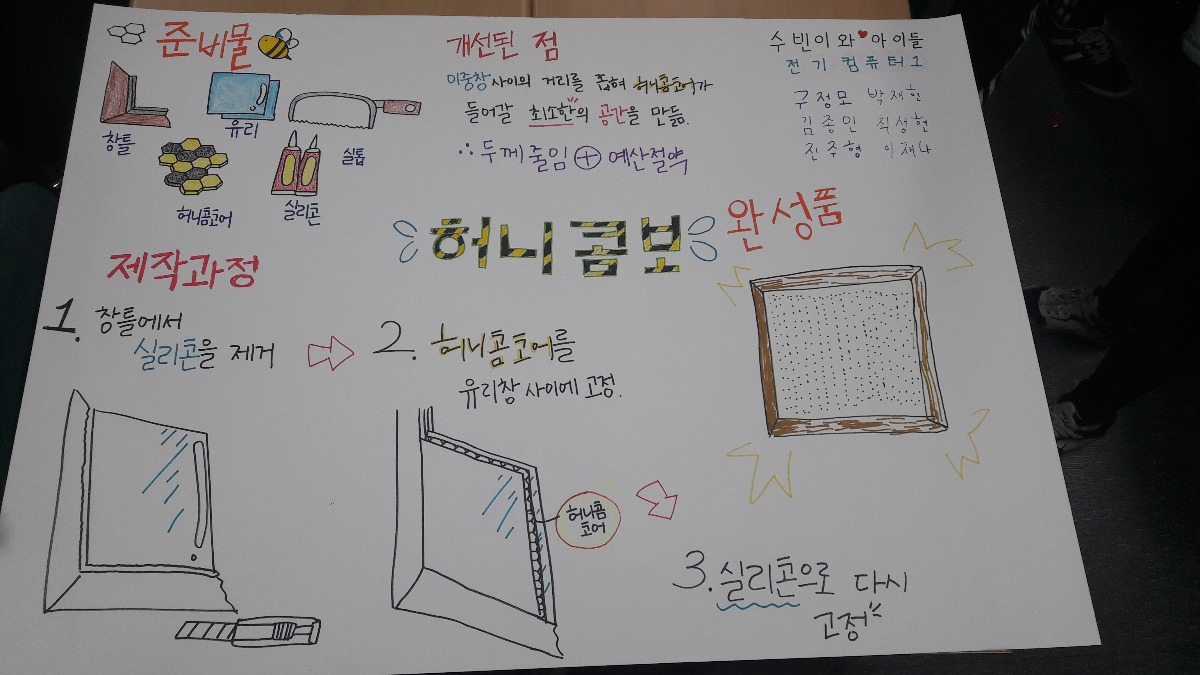 준비물
창틀
유리
실톱
허니콤코어
실리콘
개선된 점
이중창 사이의 거리를 좁혀 허니콤코어가
들어갈 최소한의 공간을 만듦.
∴ 두께 줄임 + 예산절약
수빈이와 ♥ 아이들
전기컴퓨터1
구정모 박재현
김종민 최성현
진주형 이재나
허니콤보
제작과정
1. 창틀에서
실리콘을 제거
2. 허니콤코어를
유리창 사이에 고정.
허니콤
코어
3. 실리콘으로 다시
고정
완성품